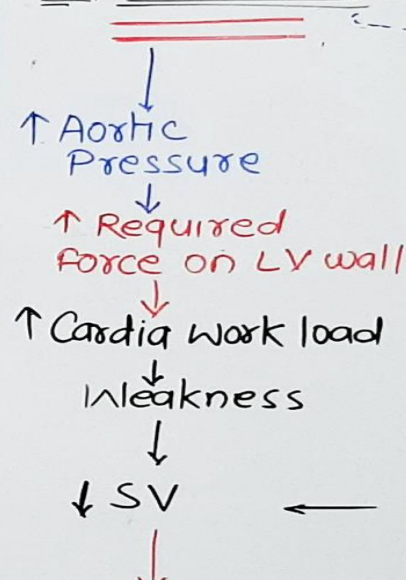 ↑ Aortic
Pressure
↓
↑ Required
force on LV wall
↓
↑ Cardia work load
↓
Weakness
↓
↓ SV ←